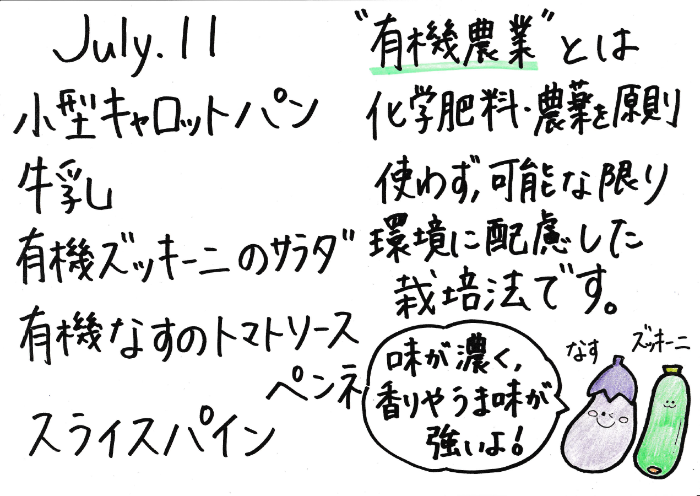 July.11
小型キャロットパン
牛乳
有機ズッキーニのサラダ
有機なすのトマトソース
ペンネ
スライスパイン
"有機農業"とは
化学肥料・農薬を原則
使わず,可能な限り
環境に配慮した
栽培法です。
味が濃く,
香りやうま味が
強いよ!
なす
ズッキーニ